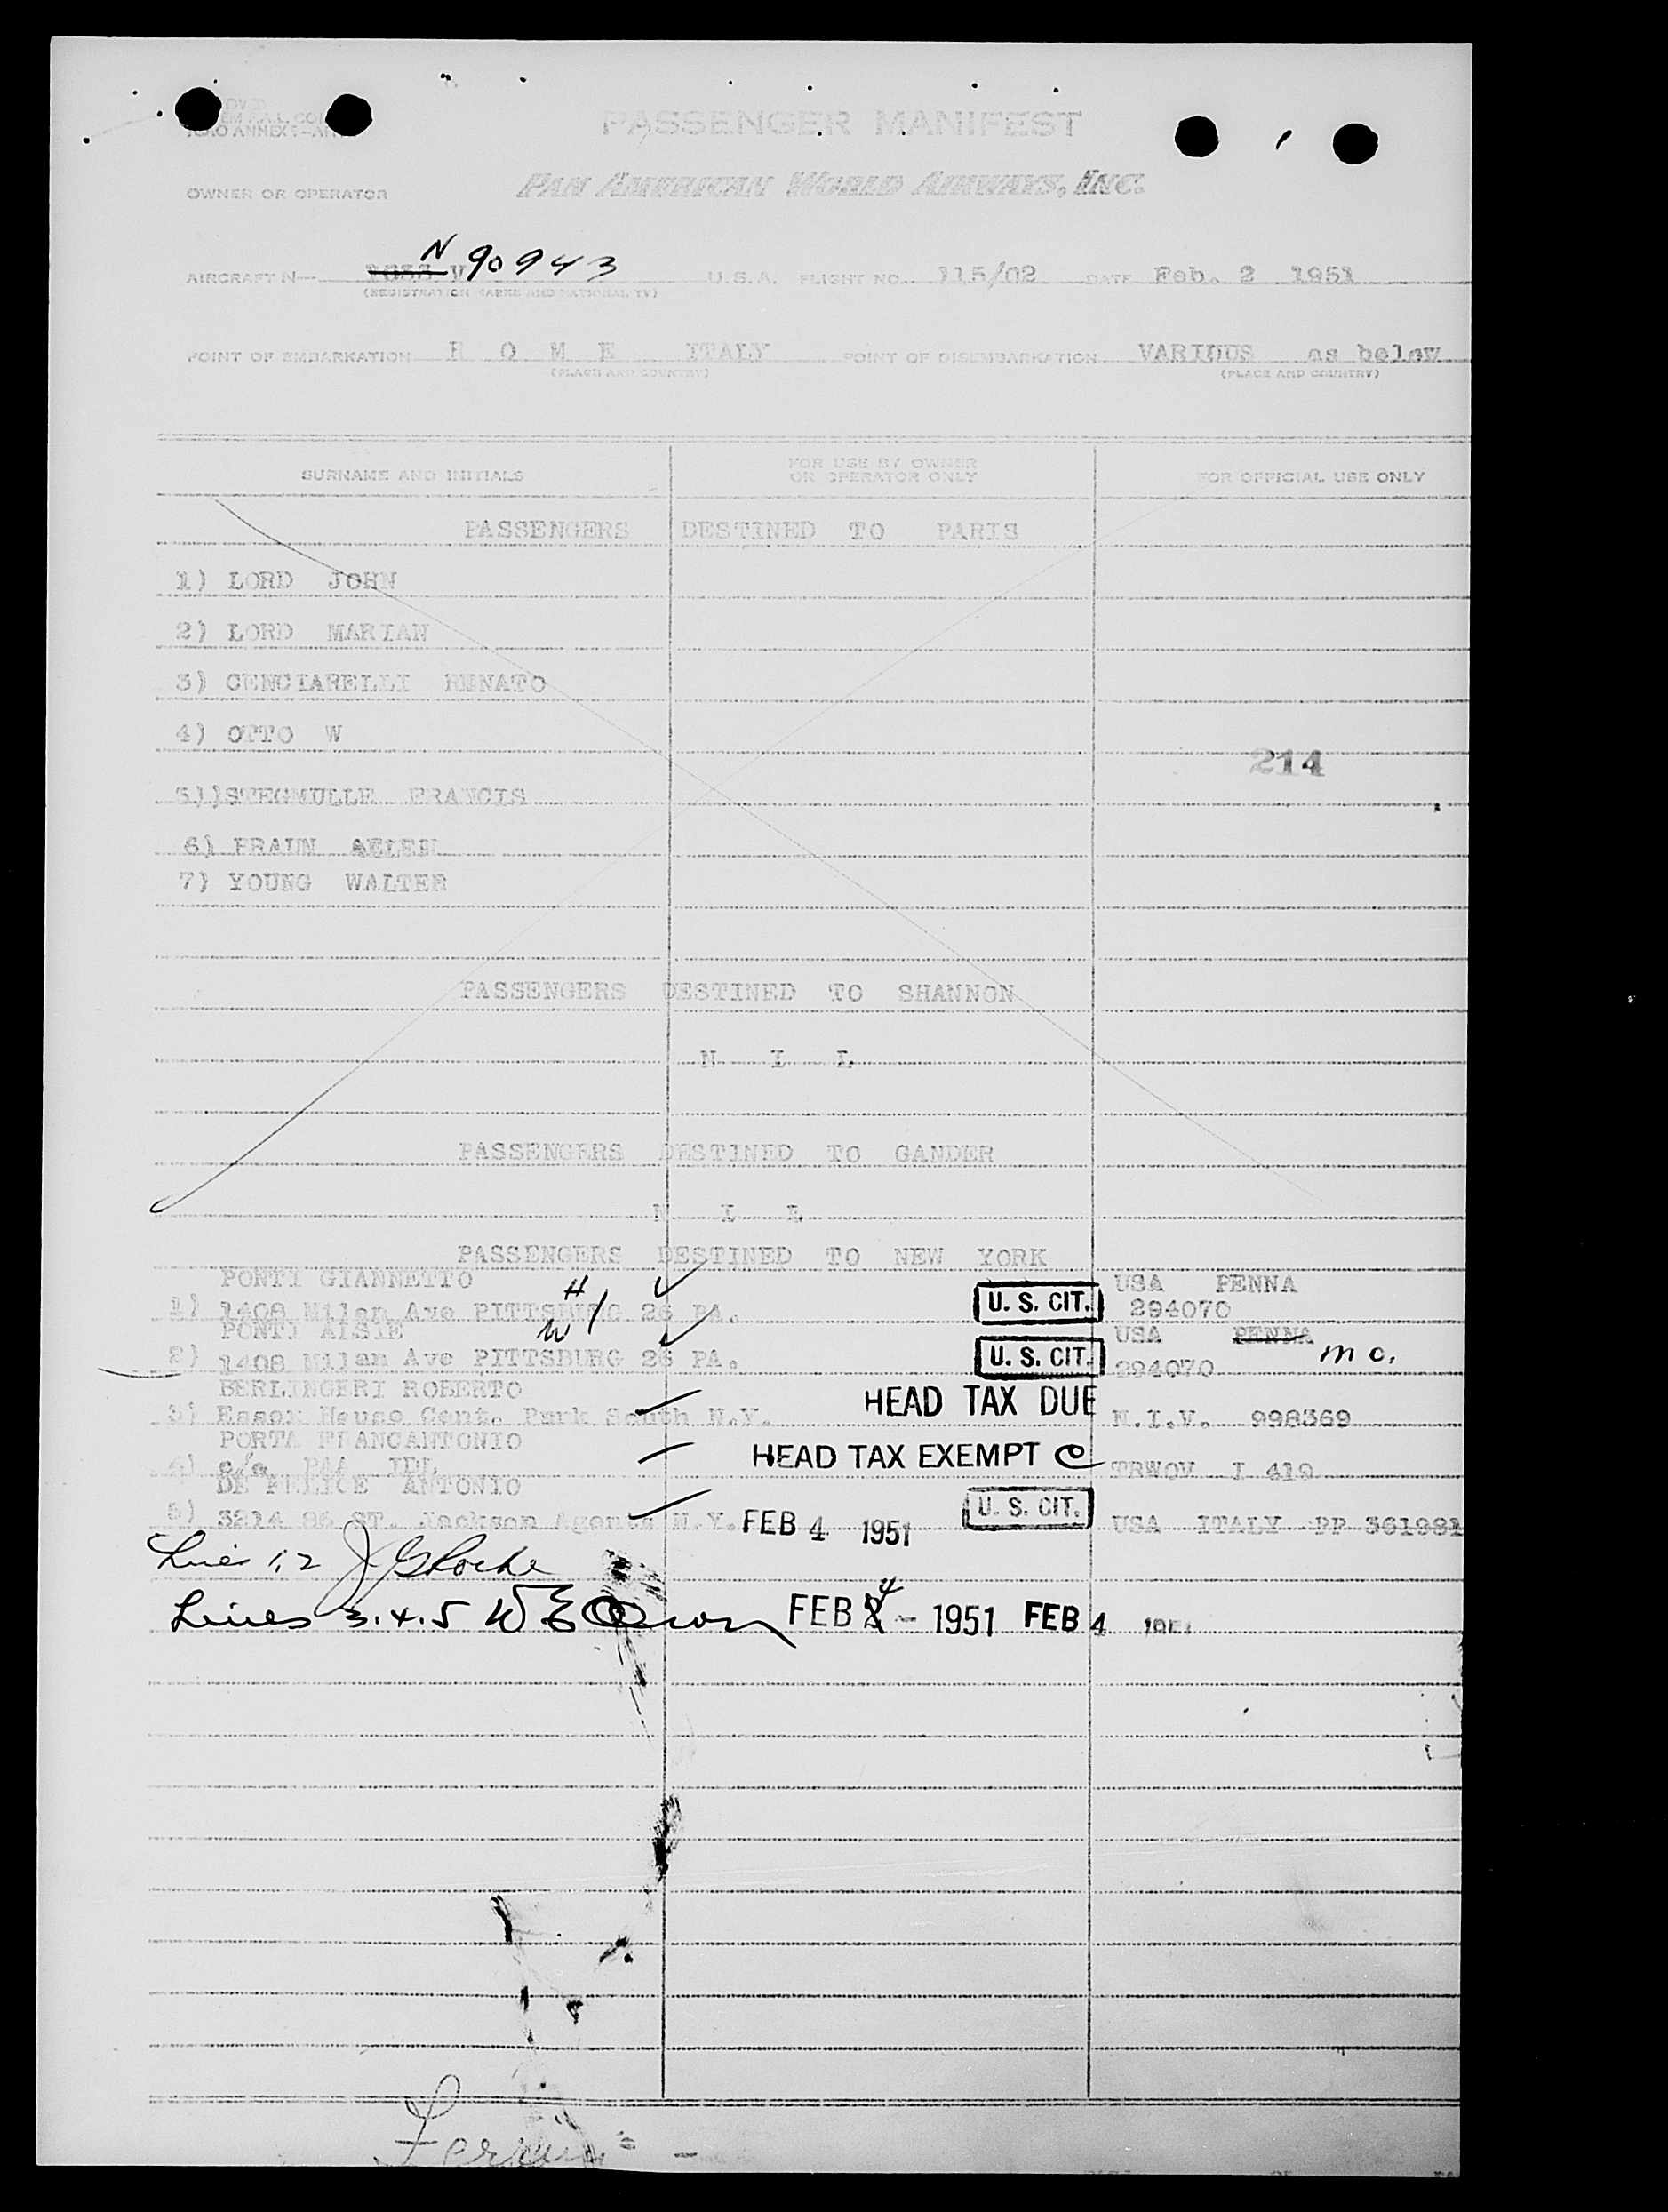 PASSENGER MANIFEST
OWNER OR OPERATOR PAN AMERICAN WORLD AIRWAYS, INC.
AIRCRAFT N— N 90943 U.S.A. FLIGHT NO. 115/02 DATE Feb. 2 1951
(REGISTRATION MARKS AND NATIONALITY)
POINT OF EMBARKATION R O M E ITALY POINT OF DISEMBARKATION VARIOUS as below
(PLACE AND COUNTRY) (PLACE AND COUNTRY)
SURNAME AND INITIALS FOR USE BY OWNER OR OPERATOR ONLY FOR OFFICIAL USE ONLY
PASSENGERS DESTINED TO PARIS
1) LORD JOHN
2) LORD MARIAN
3) CENCIARELLI RENATO
4) OTTO W
214
5))STEGMULLE FRANCIS
6) BRAUN
7) YOUNG WALTER
PASSENGERS DESTINED TO SHANNON
N I L
PASSENGERS DESTINED TO GANDER
N I L
PASSENGERS DESTINED TO NEW YORK
PONTI GIANNETTO H USA PENNA
1) 1408 Milan Ave PITTSBURG 26 PA. U. S. CIT. 294070
PONTI ALSIE W USA PENNA
2) 1408 Milan Ave PITTSBURG 26 PA. U. S. CIT. 294070 M O.
BERLINGERI ROBERTO HEAD TAX DUE
3) Essex House Cent. Park South N.Y. N.I.V. 998369
PORTA FRANCANTONIO HEAD TAX EXEMPT C
4) c/o PAA IDL TRWOV I 419
DE FELICE ANTONIO U. S. CIT.
5) 3214 86 ST. Jackson N.Y. FEB 4 1951 USA ITALY PP 361981
Lines 1,2
Lines 3.4.5 FEB 4 - 1951 FEB 4